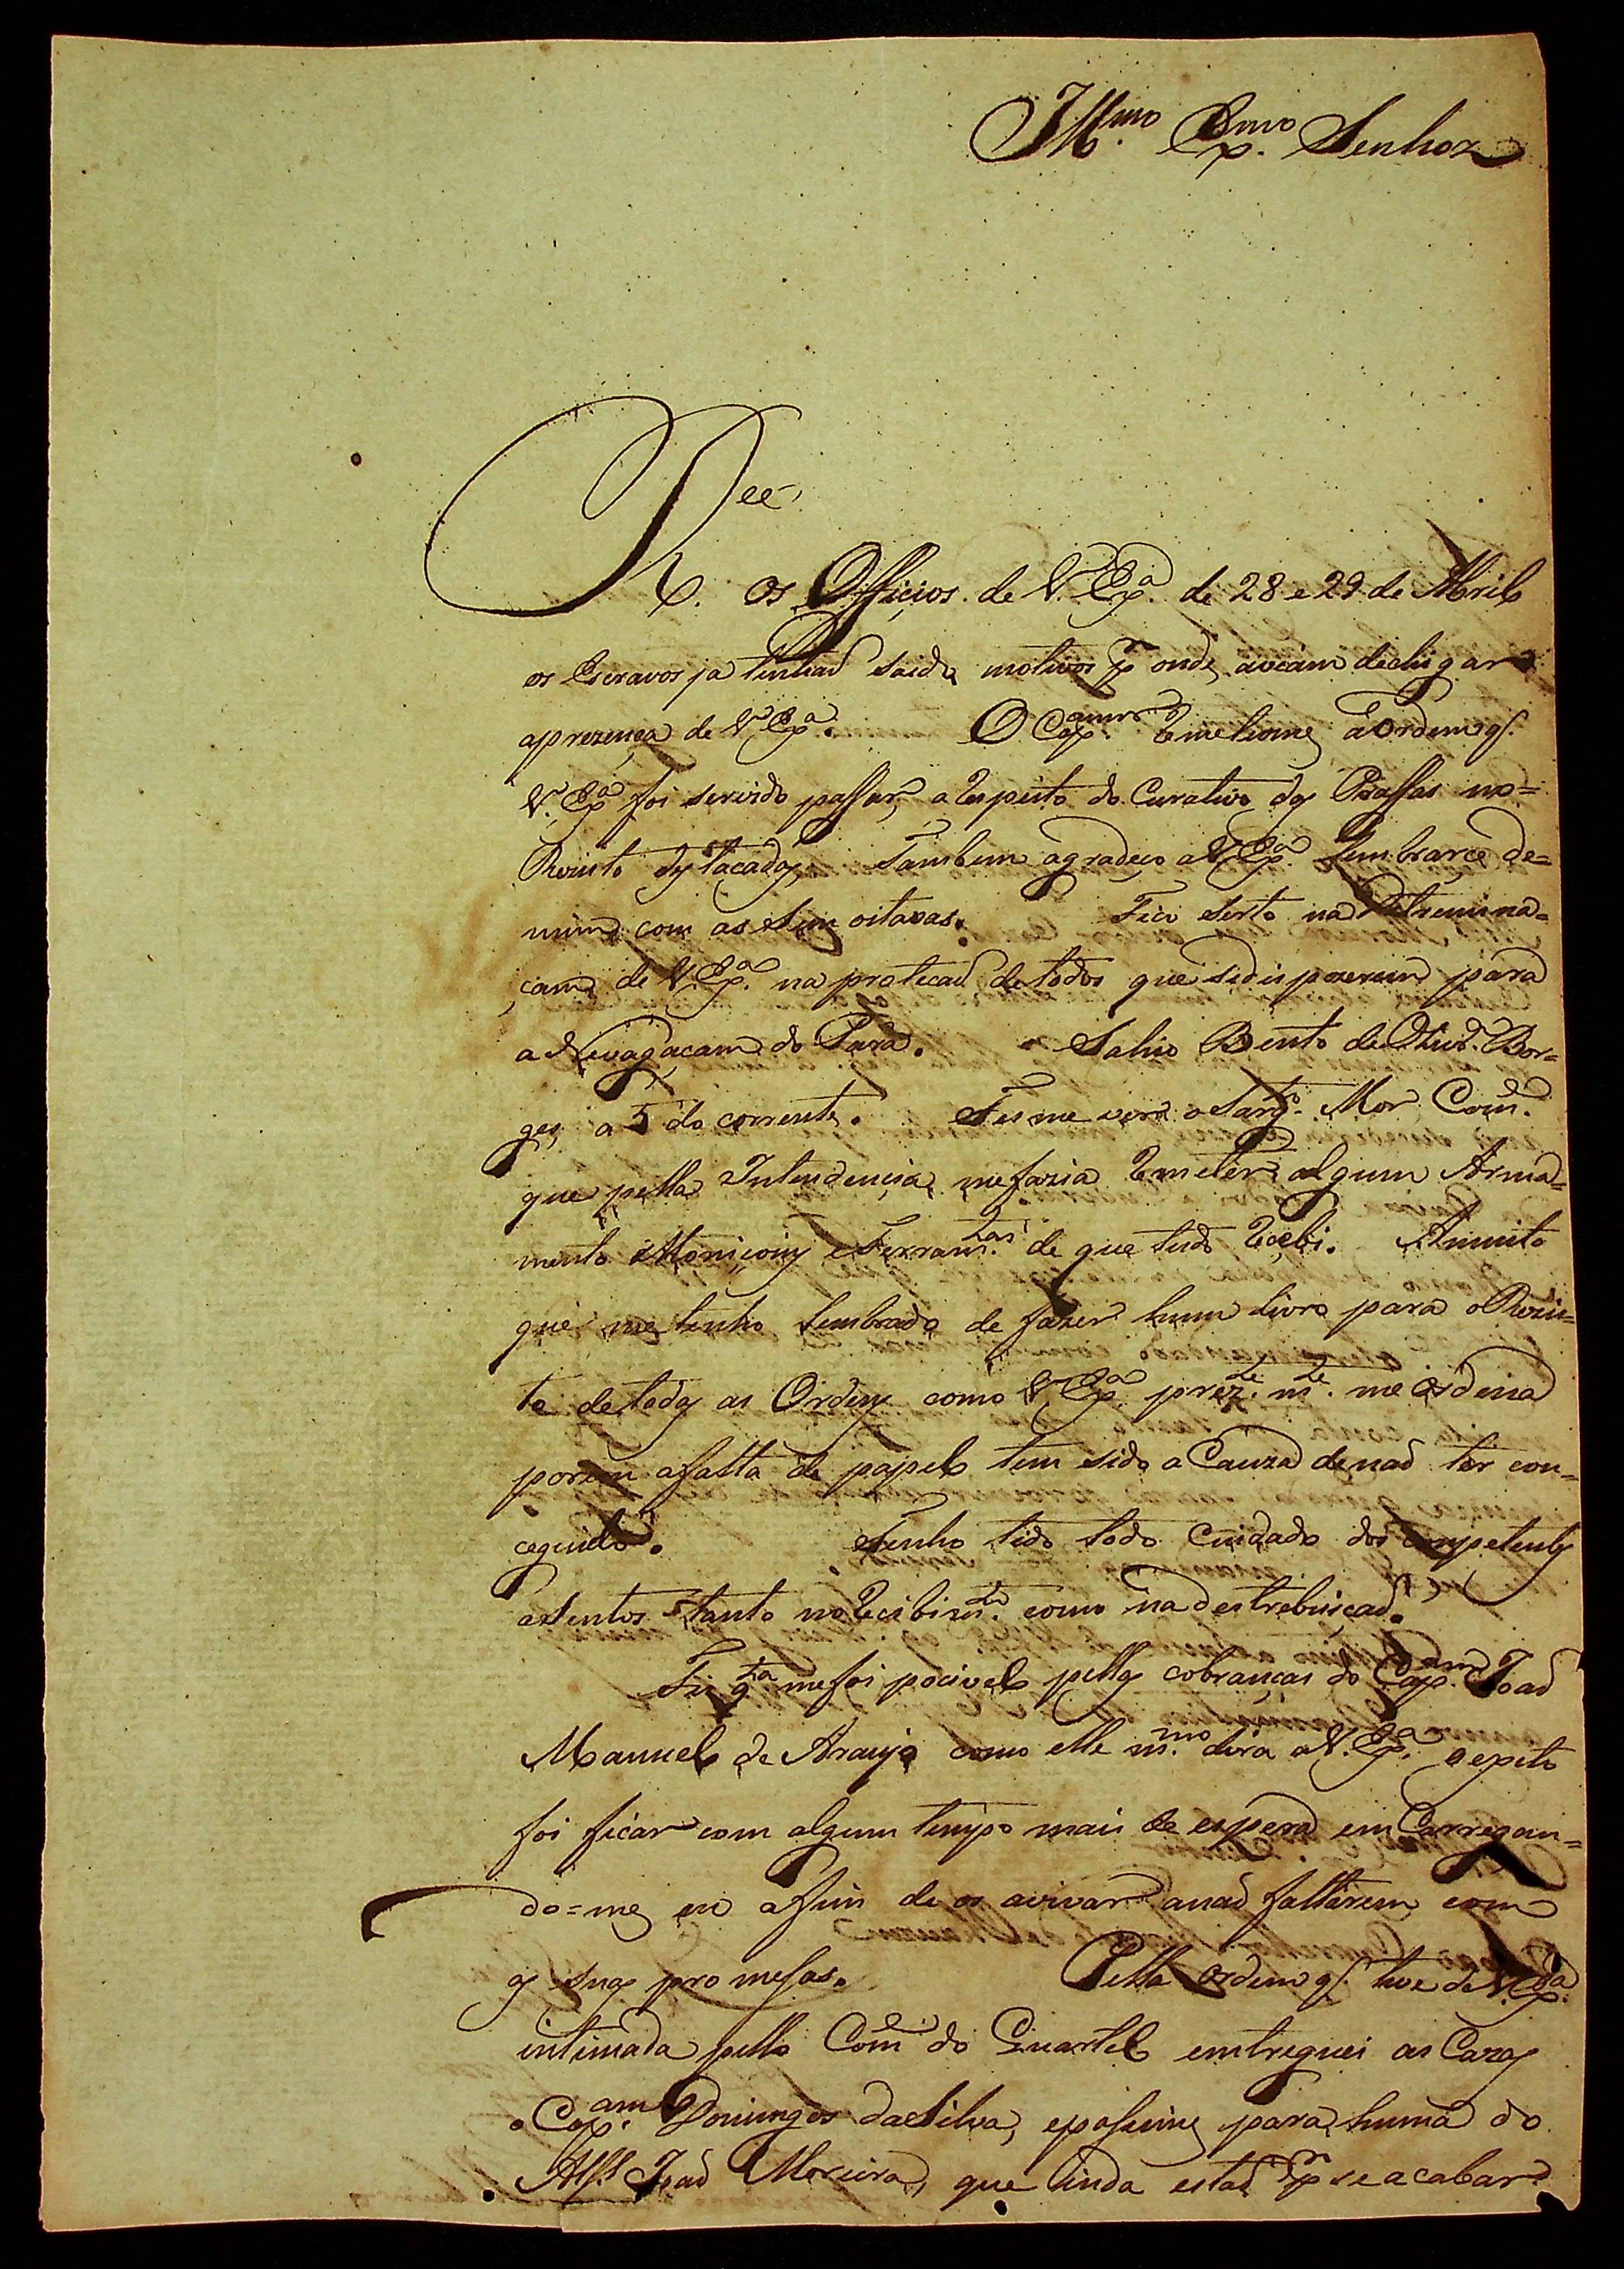 Ill.mo Ex.mo Senhor
Rec.
os Officios de V. Ex.a de 28 e 29 de Abril
os Escravos ja tinhaõ saido motivos p.r onde aviam dechigar
aprezença de V. Ex.a O Cap.am Remetiome a Ordem q.
V. Ex.a foi servido passar, a Respeito do Curativo dos Prassas no=
Prezinto destacados, Tambem agradeço a V. Ex.a lembrarce de=
mim com as sem oitavas. Fico serto na Detremina=
çam de V. Ex.a na protecaõ de todos que sedisposerem para
a Nevagaçam do Pará. Sahio Bento de Oliv.ra Bor=
ges a 5 do corrente. Fes me ver o Sarg.to Mor Com.e
que pella Intendencia me fazia Remeter algum Arma=
mento Moniçoins e Ferram.tas de que tudo Recebi. A muito
que me tenho lembrado de fazer hum livro para o Rezis=
to de todas as Ordens como V. Ex.a prez.te m.te me Ordena
porem a falta de papel tem sido a Cauza de naõ ter con=
ceguido. Tenho tido todo Cuidado dos competentes
asentos tanto no Recibim.to como na destrebuiçaõ.
Fis q.ta me foi pocivel pellas cobranças do Cap.am Joaõ
Manuel de Araujo como elle m.mo dira a V. Ex.a
foi ficar com algum tempo mais de espera em Carregan=
do=me eu afim de os avivar anaõ faltarem com
as suas promesas. Pella ordem q. tive de V. Ex.a
intimada pello Com.e do Quartel emtreguei as Cazas
o Cap.am Domingos da Silva, epaseime para huma do
Alf.s Joaõ Moreira, que inda estaõ p.r se acabar